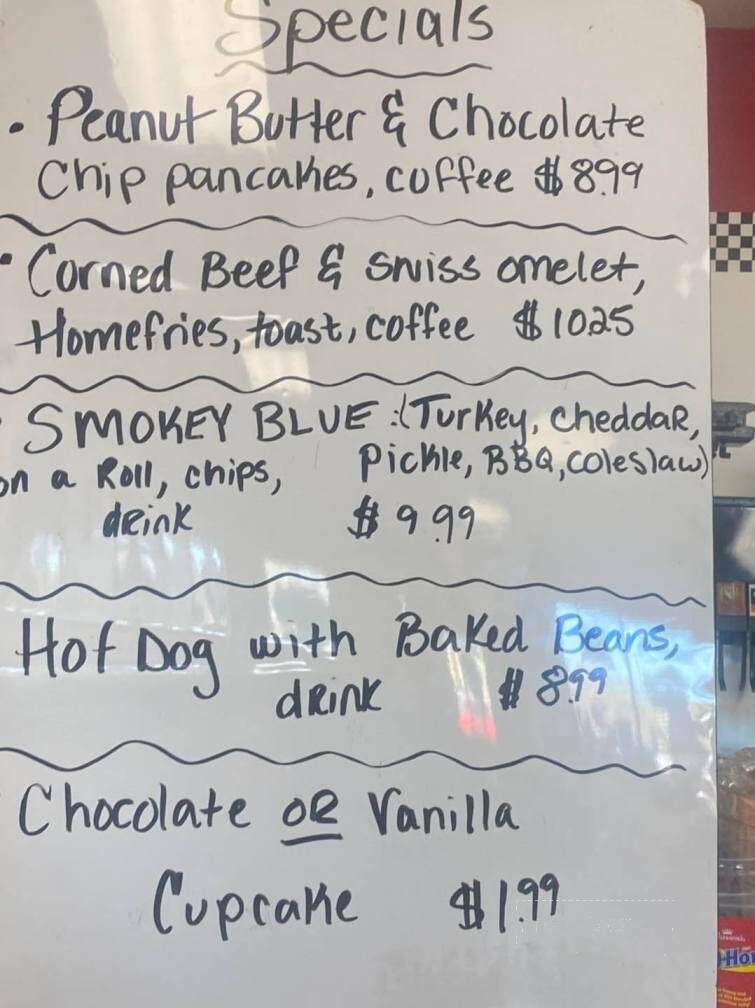 Specials
• Peanut Butter & Chocolate
Chip pancakes, coffee $8.99
• Corned Beef & swiss omelet,
Homefries, toast, coffee $10.25
SMOKEY BLUE :(Turkey, cheddar,
on a Roll, chips, Pickle, BBQ, coleslaw)
drink $9.99
Hot Dog with Baked Beans,
drink $8.99
Chocolate or Vanilla
Cupcake $1.99